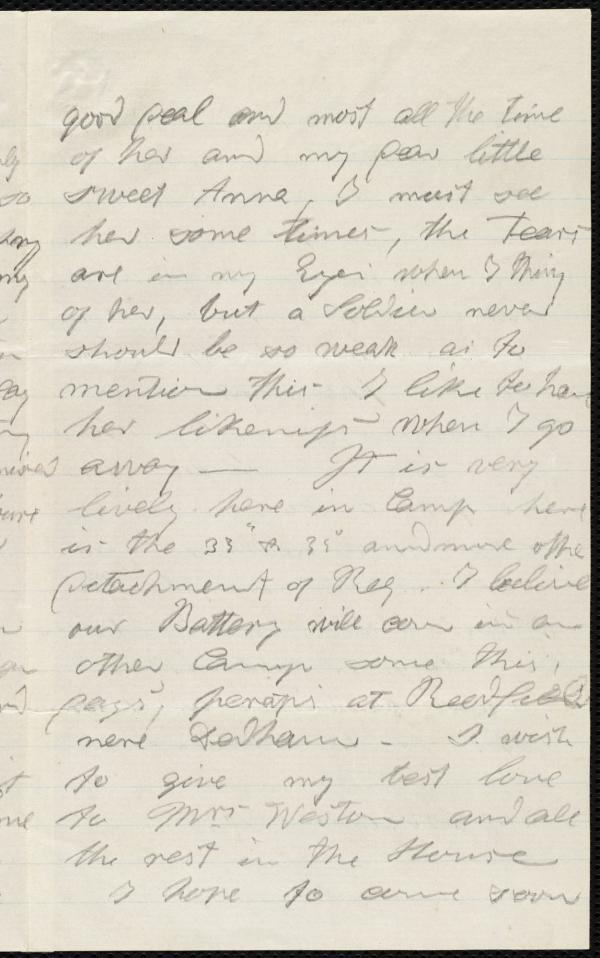 good deal and most all the time
of her and my dear little
sweet Anna, I must see
her some times, the Tears
are in my Eyes when I thing
of her, but a Soldier never
should be so weak as to
mention this I like to have
her likeniss when I go
away — It is very
lively here in Camp here
is the 33" & 35" and more othe
detachment of Reg. I believe
our Battery will com in an
other Camp some this
days, peraps at Readfield
nere Dedham - I wish
to give my best love
to Mrs Weston and all
the rest in the House
I hope to come soon